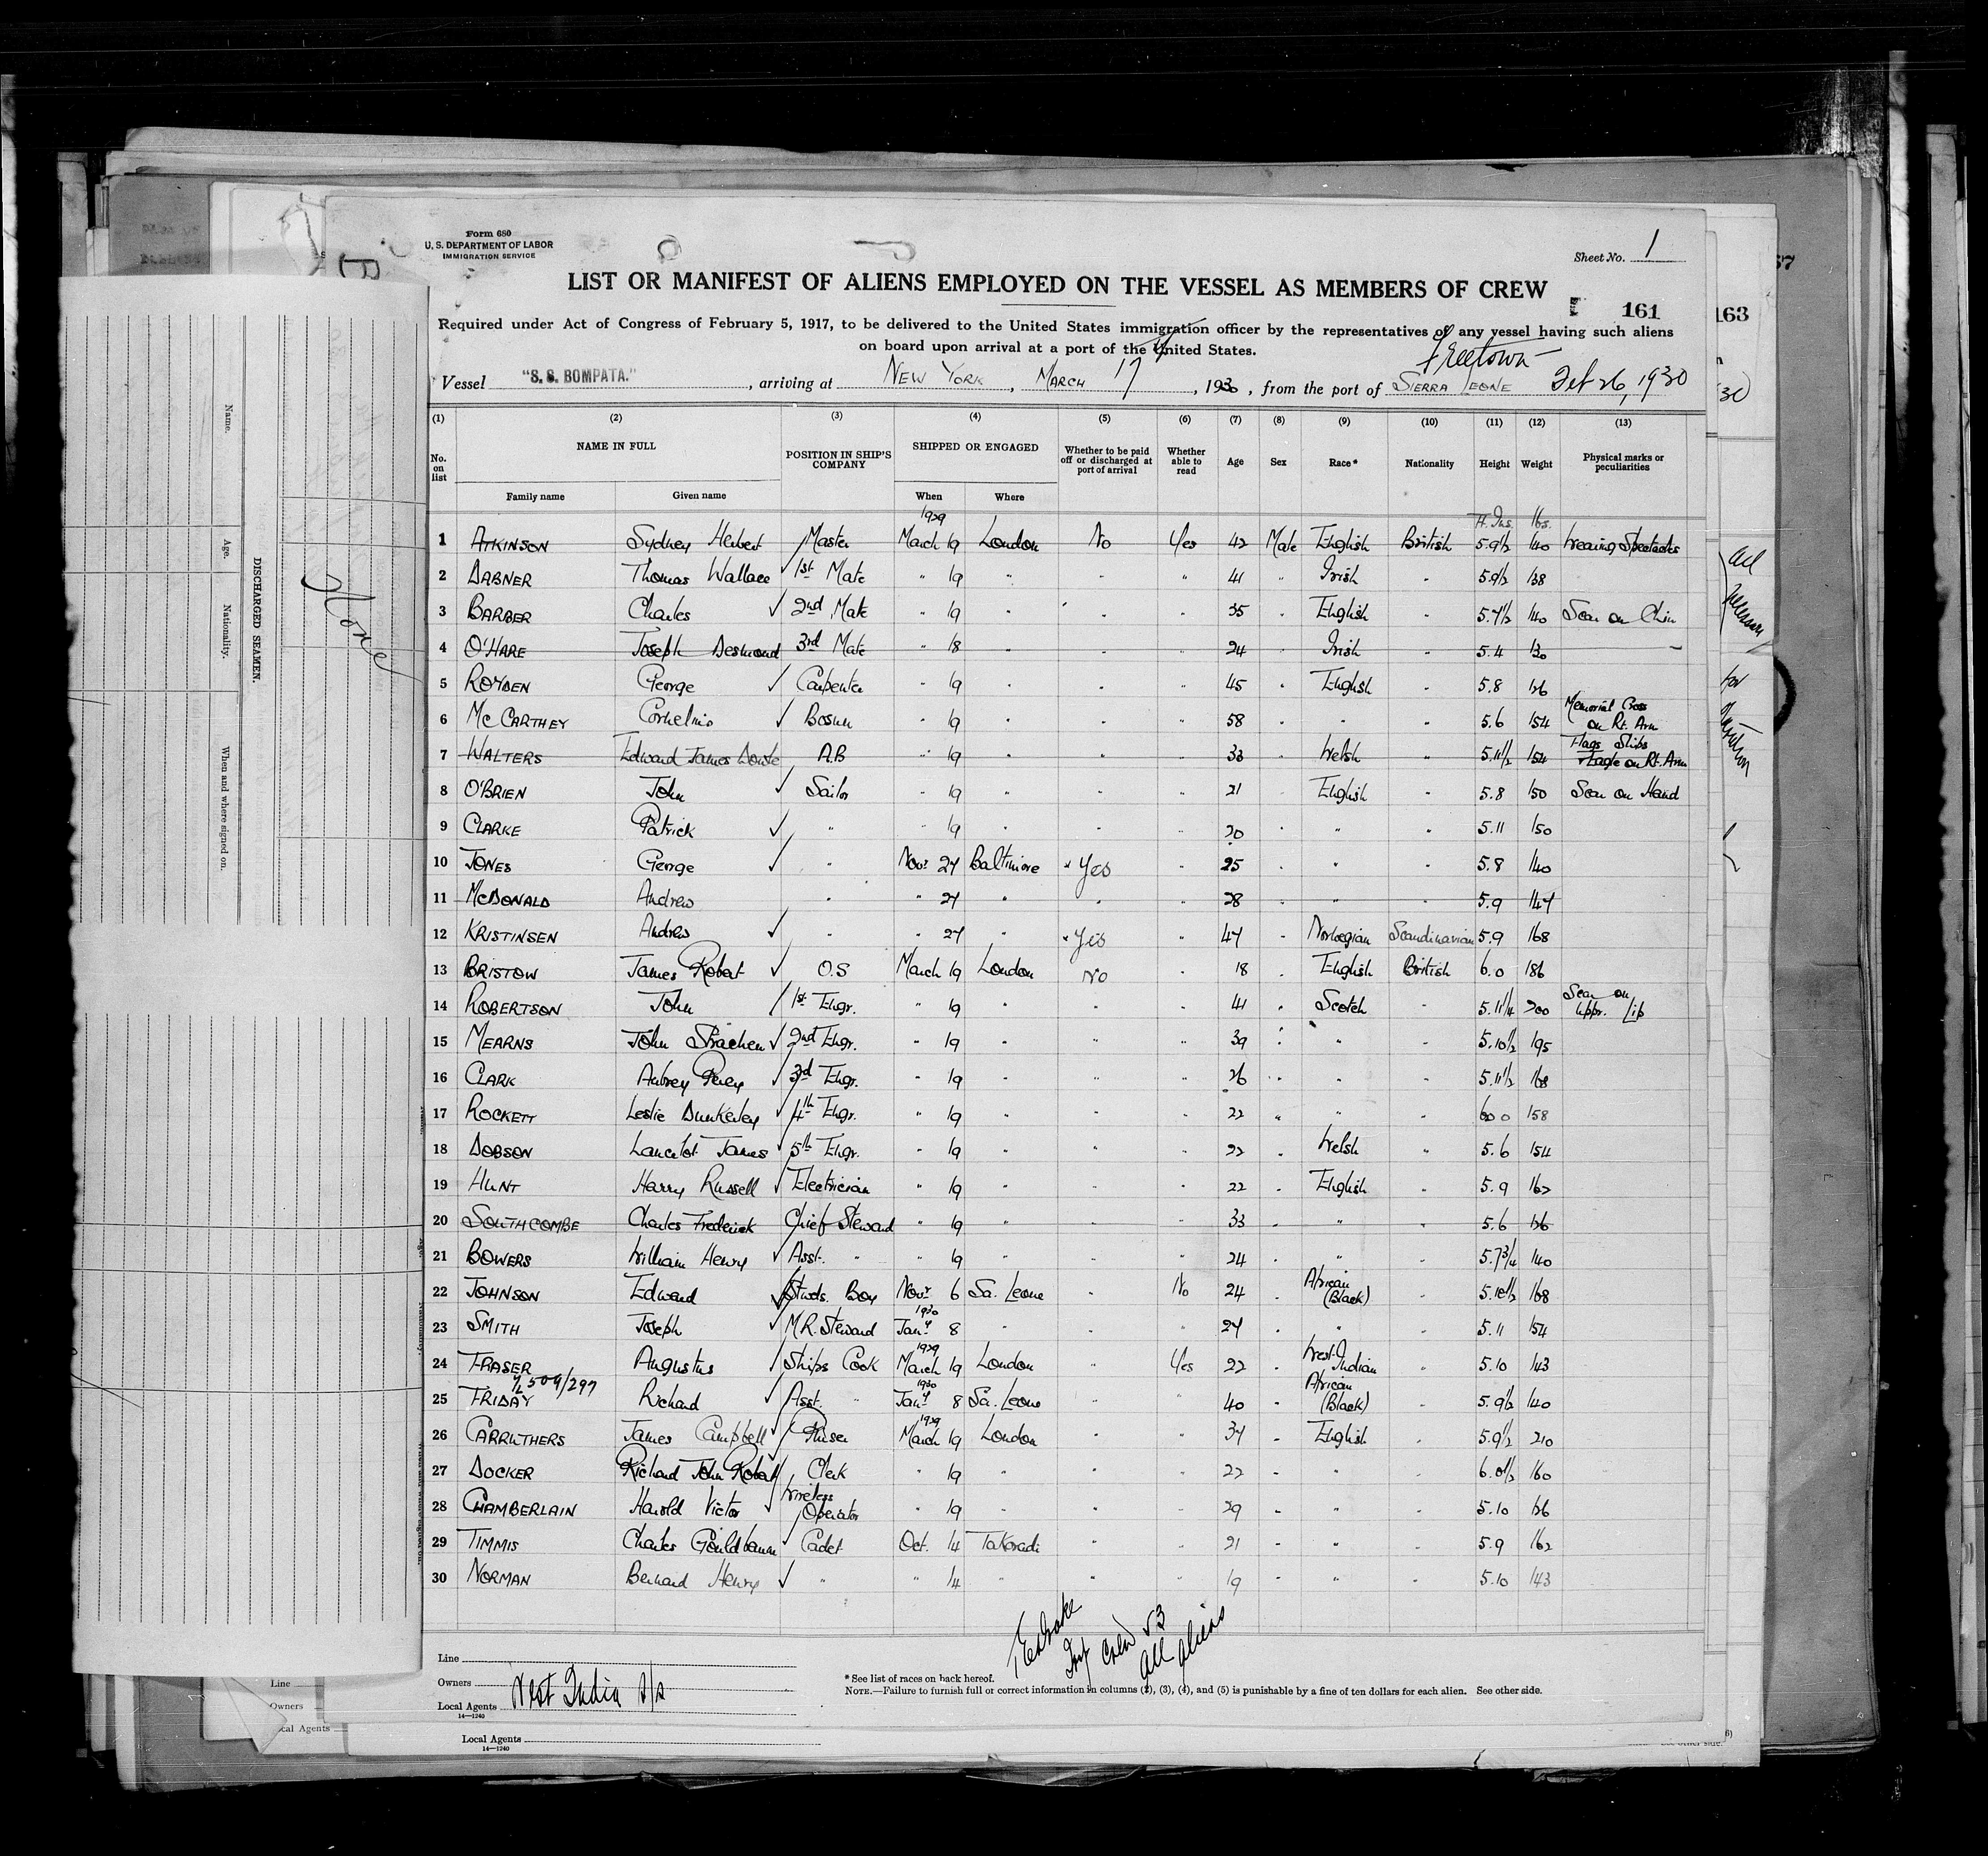 Form 680
U. S. DEPARTMENT OF LABOR
IMMIGRATION SERVICE
Sheet No. 1
LIST OR MANIFEST OF ALIENS EMPLOYED ON THE VESSEL AS MEMBERS OF CREW
161
163
Required under Act of Congress of February 5, 1917, to be delivered to the United States immigration officer by the representatives of any vessel having such aliens
on board upon arrival at a port of the United States.
Freetown
Vessel "S. S. BOMPATA." , arriving at NEW YORK , MARCH 17 , 1930 , from the port of SIERRA LEONE Feb 26, 1930
(1) (2) (3) (4) (5) (6) (7) (8) (9) (10) (11) (12) (13)
No. on list NAME IN FULL POSITION IN SHIP'S COMPANY SHIPPED OR ENGAGED Whether to be paid off or discharged at port of arrival Whether able to read Age Sex Race* Nationality Height Weight Physical marks or peculiarities
Family name Given name When Where
1929 Ft. Ins. lbs.
1 ATKINSON Sydney Herbert Master March 19 London No Yes 42 Male English British 5.9½ 140 Wearing Spectacles
2 DABNER Thomas Wallace 1st Mate " 19 " " " 41 " Irish " 5.9½ 138
3 BARBER Charles 2nd Mate " 19 " " " 35 " English " 5.7½ 140 Scar on Chin
4 O'HARE Joseph Desmond 3rd Mate " 18 " " " 24 " Irish " 5.4 130
5 ROYDEN George Carpenter " 19 " " " 45 " English " 5.8 126
6 McCARTHEY Cornelius Bosun " 19 " " " 58 " " " 5.6 154 Memorial Cross on Rt. Arm
7 WALTERS Edward James A.B " 19 " " " 33 " Welsh " 5.11½ 154 Flags Ships Eagle on Rt. Arm
8 O'BRIEN John Sailor " 19 " " " 21 " English " 5.8 150 Scar on Hand
9 CLARKE Patrick " " 19 " " " 20 " " " 5.11 150
10 JONES George " Novr 27 Baltimore " Yes " 25 " " " 5.8 140
11 McDONALD Andrew " " 27 " " " 28 " " " 5.9 147
12 KRISTINSEN Andrew " " 27 " " Yes " 47 " Norwegian Scandinavian 5.9 168
13 BRISTOW James Robert O.S March 19 London No " 18 " English British 6.0 186
14 ROBERTSON John 1st Engr. " 19 " " " 41 " Scotch " 5.11¼ 200 Scar on Uppr. Lip
15 MEARNS John Strachen 2nd Engr. " 19 " " " 39 " " " 5.10½ 195
16 CLARK Aubrey Percy 3rd Engr. " 19 " " " 26 " " " 5.11½ 168
17 ROCKETT Leslie Dunkerley 4th Engr. " 19 " " " 22 " " " 6.0 158
18 DOBSON Lancelot James 5th Engr. " 19 " " " 22 " Welsh " 5.6 154
19 HUNT Harry Russell Electrician " 19 " " " 22 " English " 5.9 162
20 SOUTHCOMBE Charles Frederick Chief Steward " 19 " " " 33 " " " 5.6 126
21 BOWERS William Henry Asst. " " 19 " " " 24 " " " 5.7¾ 140
22 JOHNSON Edward Stwds. Boy Novr 6 Sa. Leone " No 24 " African (Black) " 5.10½ 168
1930
23 SMITH Joseph M.R. Steward Jany 8 " " " 27 " " " 5.11 154
1929
24 FRASER Augustus Ships Cook March 19 London " Yes 22 " West Indian " 5.10 143
509/297
1930
25 FRIDAY Richard Asst. " Jany 8 Sa. Leone " " 40 " African (Black) " 5.9½ 140
1929
26 CARRUTHERS James Campbell Purser March 19 London " " 37 " English " 5.9½ 210
27 DOCKER Richard John Robert Clerk " 19 " " " 22 " " " 6.0½ 160
28 CHAMBERLAIN Harold Victor Wireless Operator " 19 " " " 29 " " " 5.10 126
29 TIMMIS Charles Cadet Oct. 14 Takoradi " " 21 " " " 5.9 162
30 NORMAN Bernard Henry " " 14 " " " 19 " " " 5.10 143
crew 53
all aliens
Line
Owners
Local Agents West India S/S
14—1240
* See list of races on back hereof.
NOTE.—Failure to furnish full or correct information in columns (2), (3), (4), and (5) is punishable by a fine of ten dollars for each alien. See other side.
Line
Owners
Local Agents
14—1240
DISCHARGED SEAMEN.
Name. Age. Nationality. When and where signed on.
None